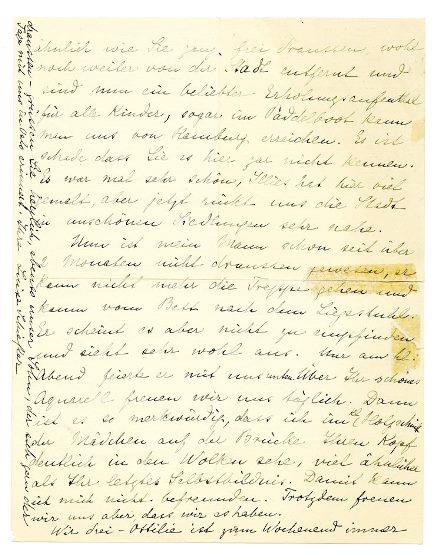 ähnlich wie Sie ganz frei draussen, wohl
noch weiter von der Stadt entfernt und
sind nun ein beliebter Erholungsaufenthalt
für alle Kinder, sogar im Paddelboot kann
man uns von Hamburg erreichen. Es ist
schade dass Sie es hier gar nicht kennen.
Es war mal sehr schön, Illies hat hier viel
gemalt, aber jetzt rückt uns die Stadt
in unschönen Siedlungen sehr nahe.
Nun ist mein Mann schon seit über
2 Monaten nicht draussen gewesen, er
kann nicht mehr die Treppe gehen und
kaum vom Bett nach dem Liegestuhl.
Er scheint es aber nicht zu empfinden
und sieht sehr wohl aus. Nur am
Abend feierte er mit uns unten. Über Ihr schönes
Aquarell freuen wir uns täglich. Dann
ist es so merkwürdig, dass ich im Holzschnitt
der Mädchen auf der Brücke Ihren Kopf
deutlich in den Wolken sehe, viel ähnlicher
als Ihr letztes Selbstbildnis. Damit kann
ich mich nicht befreunden. Trotzdem freuen
wir uns aber dass wir es haben.
Wir drei - Ottilie ist zum Wochenend immer
draussen - grüssen Sie herzlich, ebenso unser Sohn, der sich gern der
Tage mit uns in Oslo erinnert. Ihre Luise Schiefler